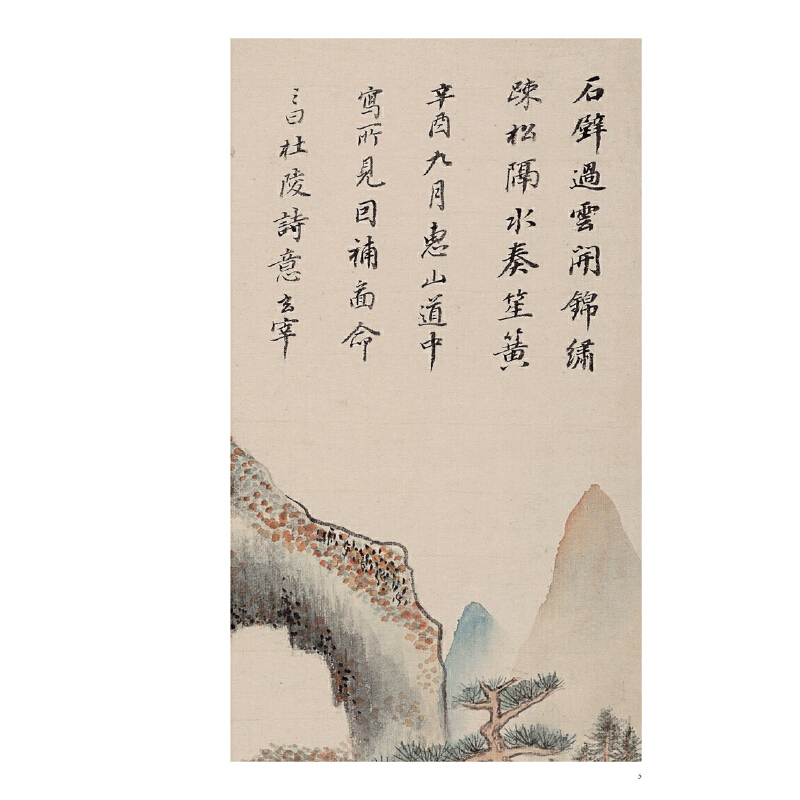 石壁過雲開錦繡
疎松隔水奏笙簧
辛酉九月惠山道中
寫所見因補圖命
之曰杜陵詩意玄宰
5